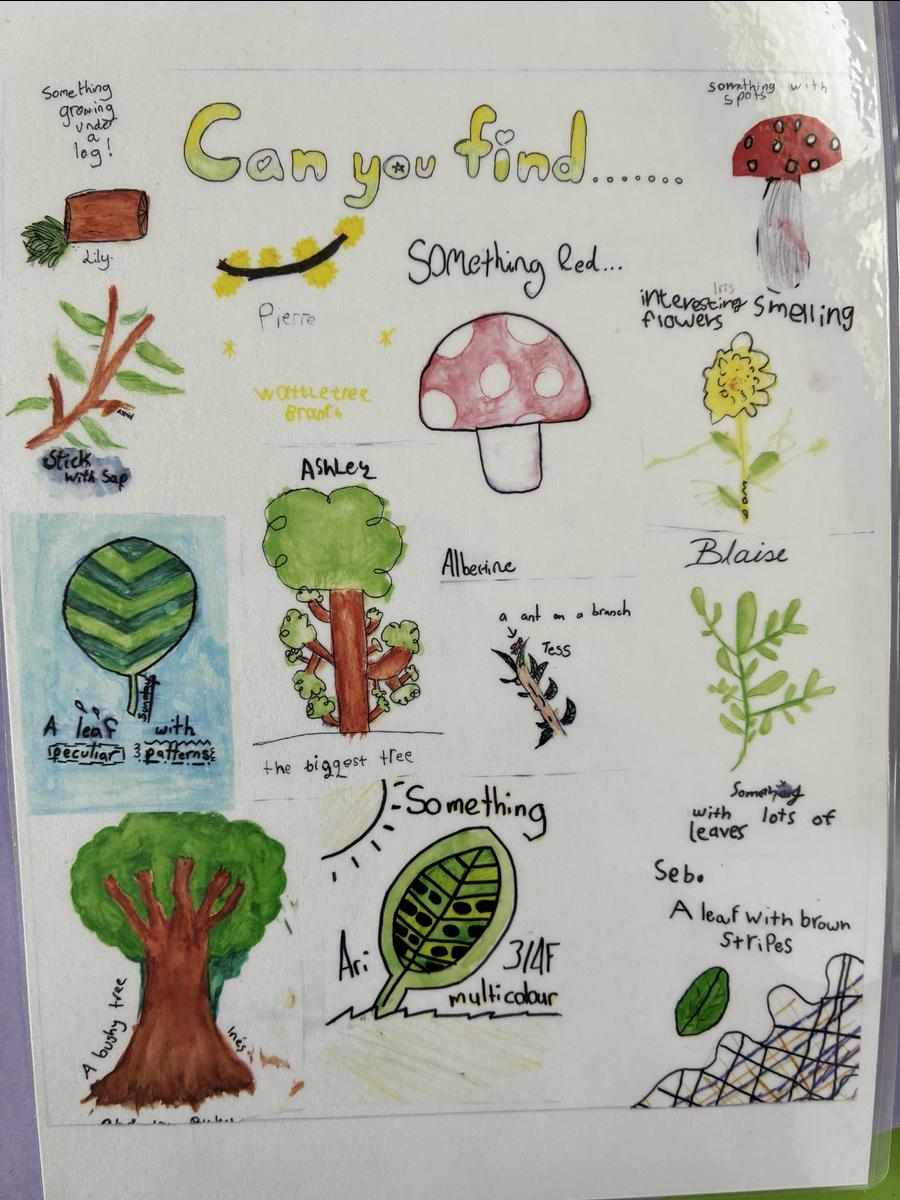 Something
growing
under
a
log!
Lily.
Can you find.......
something with
spots
Iris
Pierre
Wattletree
Branch
Something Red...
interesting smelling
flowers
Astrid
Stick
with sap
Ashley
the biggest tree
Alberine
a ant on a branch
Tess
Blaise
Something
with lots of
leaves
A leaf with
peculiar patterns
A bushy tree
Inés
Something
multicolour
Ari
3/4F
Seb.
A leaf with brown
stripes